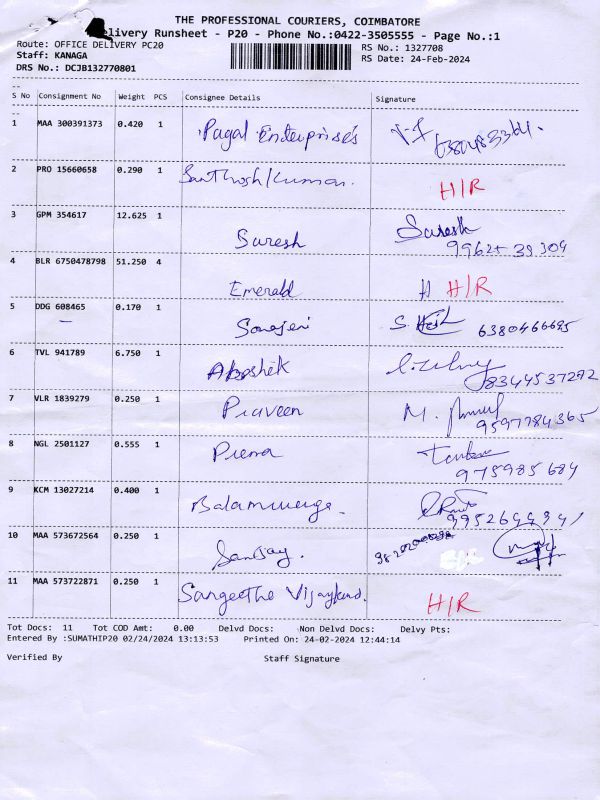 THE PROFESSIONAL COURIERS, COIMBATORE
elivery Runsheet - P20 - Phone No.:0422-3505555 - Page No.:1
Route: OFFICE DELIVERY PC20 RS No.: 1327708
Staff: KANAGA RS Date: 24-Feb-2024
DRS No.: DCJB132770801
S No Consignment No Weight PCS Consignee Details Signature
1 MAA 300391373 0.420 1 Pagal Enterprises
2 PRO 15660658 0.290 1 Santhosh Kumar. H/R
3 GPM 354617 12.625 1 Suresh Suresh
99625 39309
4 BLR 6750478798 51.250 4 Emerald H H/R
5 DDG 608465 0.170 1 S. 6380466695
6 TVL 941789 6.750 1 Abishek 8344537292
7 VLR 1839279 0.250 1 Praveen M.
9597784365
8 NGL 2501127 0.555 1 Prema
975985684
9 KCM 13027214 0.400 1 Balamuruga.
10 MAA 573672564 0.250 1 Sanjay.
11 MAA 573722871 0.250 1 Sangeetha H/R
Tot Docs: 11 Tot COD Amt: 0.00 Delvd Docs: Non Delvd Docs: Delvy Pts:
Entered By :SUMATHIP20 02/24/2024 13:13:53 Printed On: 24-02-2024 12:44:14
Verified By Staff Signature